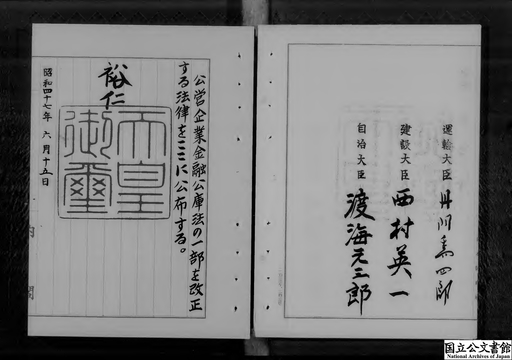 運輸大臣 丹羽喬四郎
建設大臣 西村英一
自治大臣 渡海元三郎
公営企業金融公庫法の一部を改正
する法律をここに公布する。
裕仁
天皇御璽
昭和四十七年六月十五日
内閣
国立公文書館
National Archives of Japan